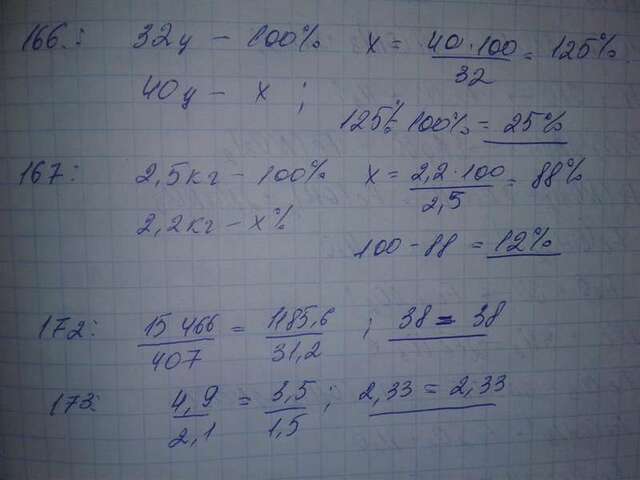 166.: 32ц – 100% x = 40·100/32 = 125%
40ц – x ;
125%-100% = 25%
167: 2,5кг – 100% x = 2,2·100/2,5 = 88%
2,2кг – x%
100 – 88 = 12%
172: 15 466/407 = 1185,6/31,2 ; 38 = 38
173: 4,9/2,1 = 3,5/1,5 ; 2,33 = 2,33